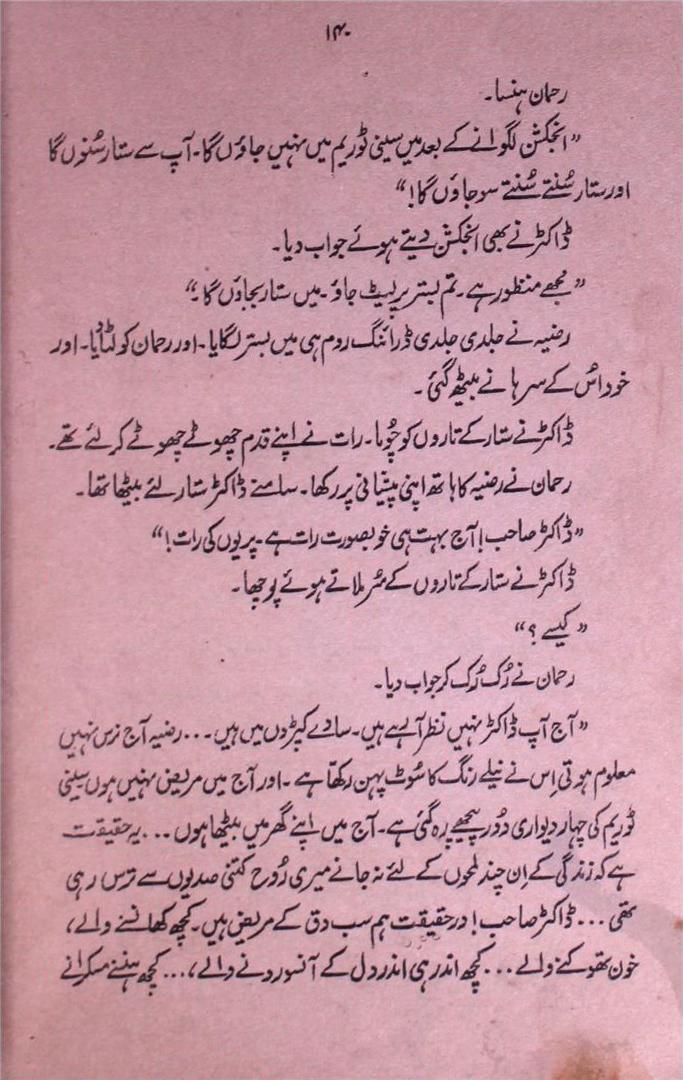 ۱۴۰
رحمان ہنسا۔
”انجکشن لگوانے کے بعد میں سینی ٹوریم میں نہیں جاؤں گا۔ آپ سے ستار سُنوں گا
اور ستار سُنتے سُنتے سو جاؤں گا!“
ڈاکٹر نے بھی انجکشن دیتے ہوئے جواب دیا۔
”مجھے منظور ہے۔ تم بستر پر لیٹ جاؤ۔ میں ستار بجاؤں گا۔“
رضیہ نے جلدی جلدی ڈرائنگ روم ہی میں بستر لگایا۔ اور رحمان کو لٹا دیا۔ اور
خود اُس کے سرہانے بیٹھ گئی۔
ڈاکٹر نے ستار کے تاروں کو چُوما۔ رات نے اپنے قدم چھوٹے چھوٹے کر لئے تھے۔
رحمان نے رضیہ کا ہاتھ اپنی پیشانی پر رکھا۔ سامنے ڈاکٹر ستار لئے بیٹھا تھا۔
”ڈاکٹر صاحب! آج بہت ہی خوبصورت رات ہے۔ پریوں کی رات!“
ڈاکٹر نے ستار کے تاروں کے سُر ملاتے ہوئے پوچھا۔
”کیسے؟“
رحمان نے رُک رُک کر جواب دیا۔
”آج آپ ڈاکٹر نہیں نظر آ رہے ہیں۔ سادے کپڑوں میں ہیں... رضیہ آج نرس نہیں
معلوم ہوتی اِس نے نیلے رنگ کا سُوٹ پہن رکھا ہے۔ اور آج میں مریض نہیں ہوں سینی
ٹوریم کی چہار دیواری دُور پیچھے رہ گئی ہے۔ آج میں اپنے گھر میں بیٹھا ہوں... یہ حقیقت
ہے کہ زندگی کے اِن چند لمحوں کے لئے نہ جانے میری رُوح کتنی صدیوں سے ترس رہی
تھی... ڈاکٹر صاحب! درحقیقت ہم سب دق کے مریض ہیں۔ کچھ کھانسنے والے،
خون تھوکنے والے... کچھ اندر ہی اندر دل کے آنسو رونے والے،... کچھ ہنسنے مسکرانے